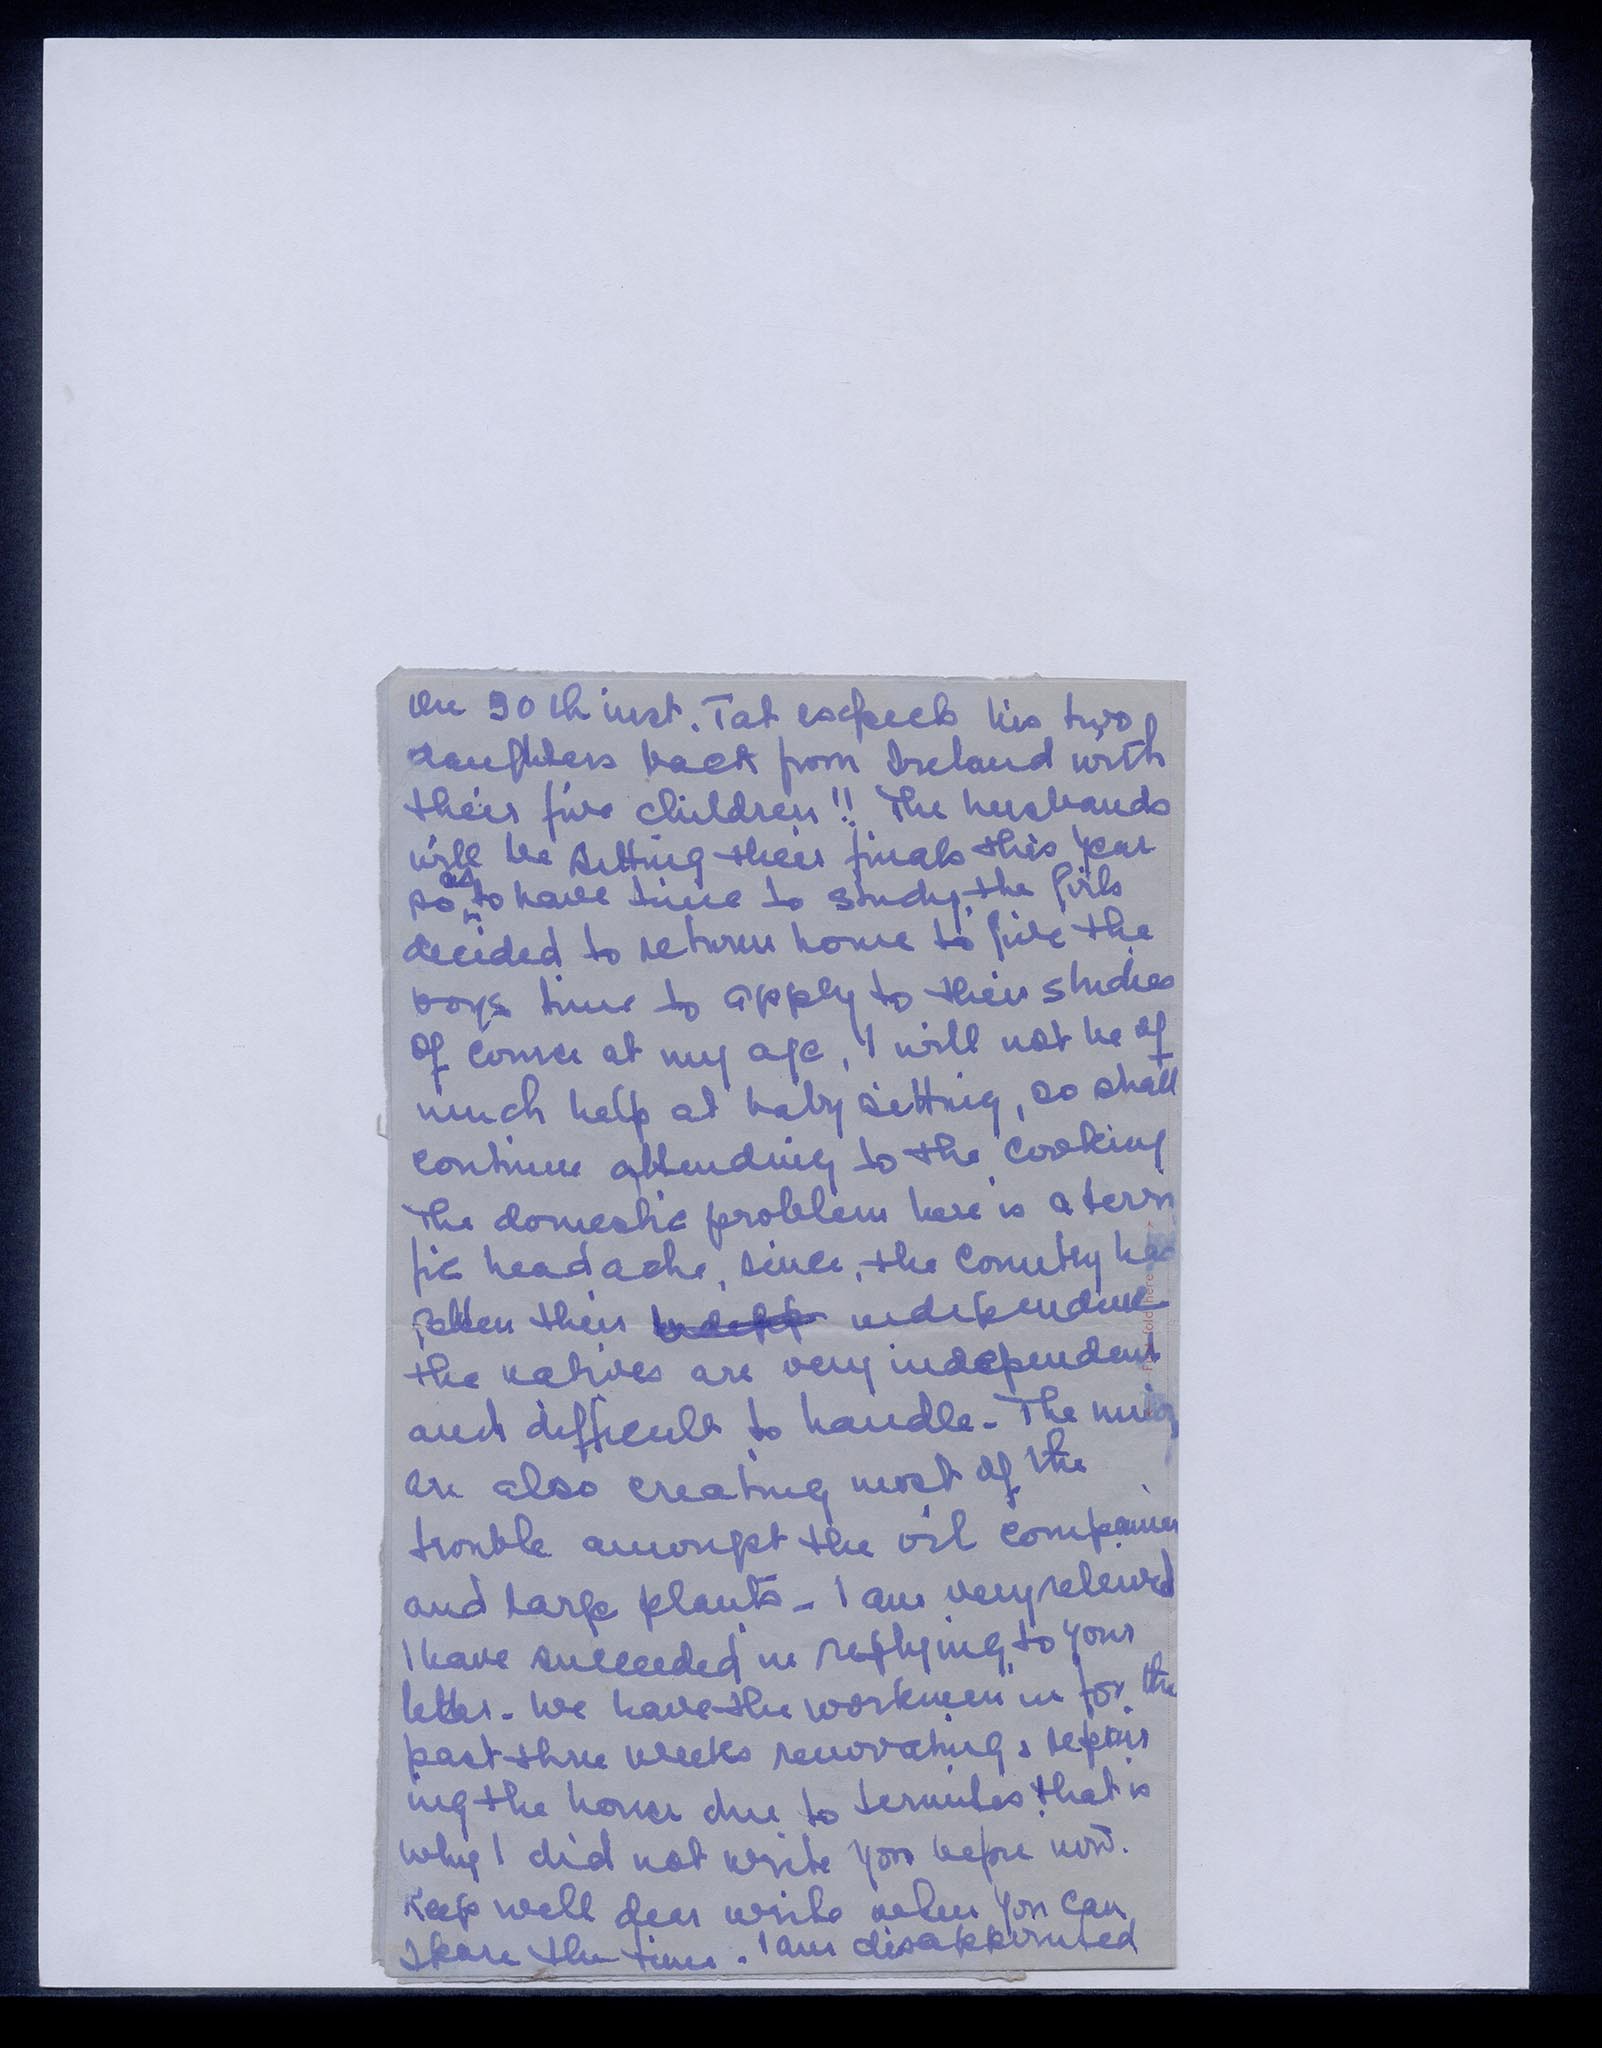 the 30th inst. Tat expects his two
daughters back from Ireland with
their five children!! The husbands
will be sitting their finals this year
so as to have time to study, the girls
decided to return home to give the
boys time to apply to their studies
Of course at my age, I will not be of
much help at baby sitting, so shall
continue attending to the cooking
The domestic problem here is a terri
fic headache, since, the country has
gotten their independence
the natives are very independent
and difficult to handle - The
are also creating most of the
trouble amongst the oil companies
and large plants - I am very relieved
I have succeeded in replying to your
letter - We have the workmen in for the
past three weeks renovating & repair
ing the house due to termites that is
why I did not write you before now.
Keep well dear write when you can
spare the time. I am disappointed
First fold here